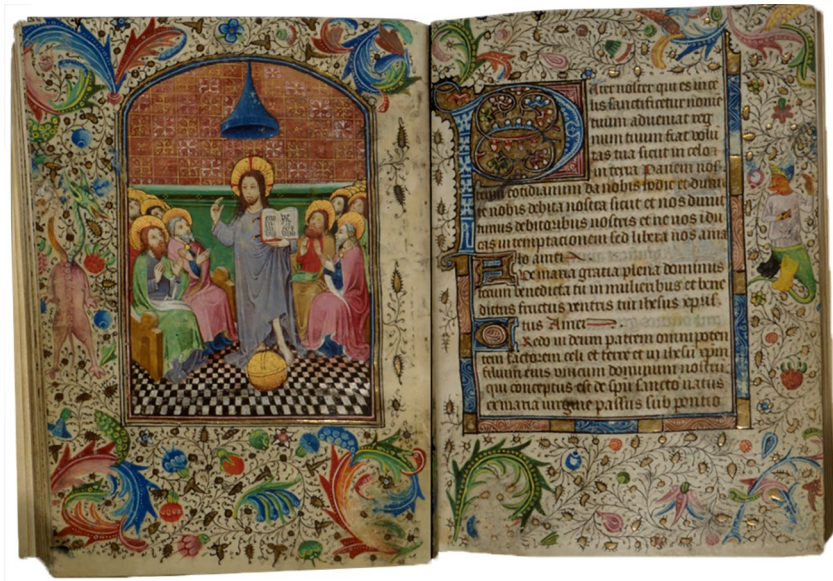 Pater noster qui es in ce
lis sanctificetur nome
tuum adveniat reg
num tuum fiat volu
tas tua sicut in celo
in terra Panem nos
trum cotidianum da nobis hodie et dimi
te nobis debita nostra sicut et nos dimi
timus debitoribus nostris et ne nos idu
cas in temptationem sed libera nos ama
lo amen
Ave maria gratia plena dominus
tecum benedicta tu in mulieribus et bene
dictus fructus ventris tui ihesus xpris
tus Amen
Credo in deum patrem omnipoten
tem factorem celi et terre et in ihesu xpm
filium eius unicum dominum nostru
qui conceptus est de spu sancto natus
ex maria virgine passus sub pontio